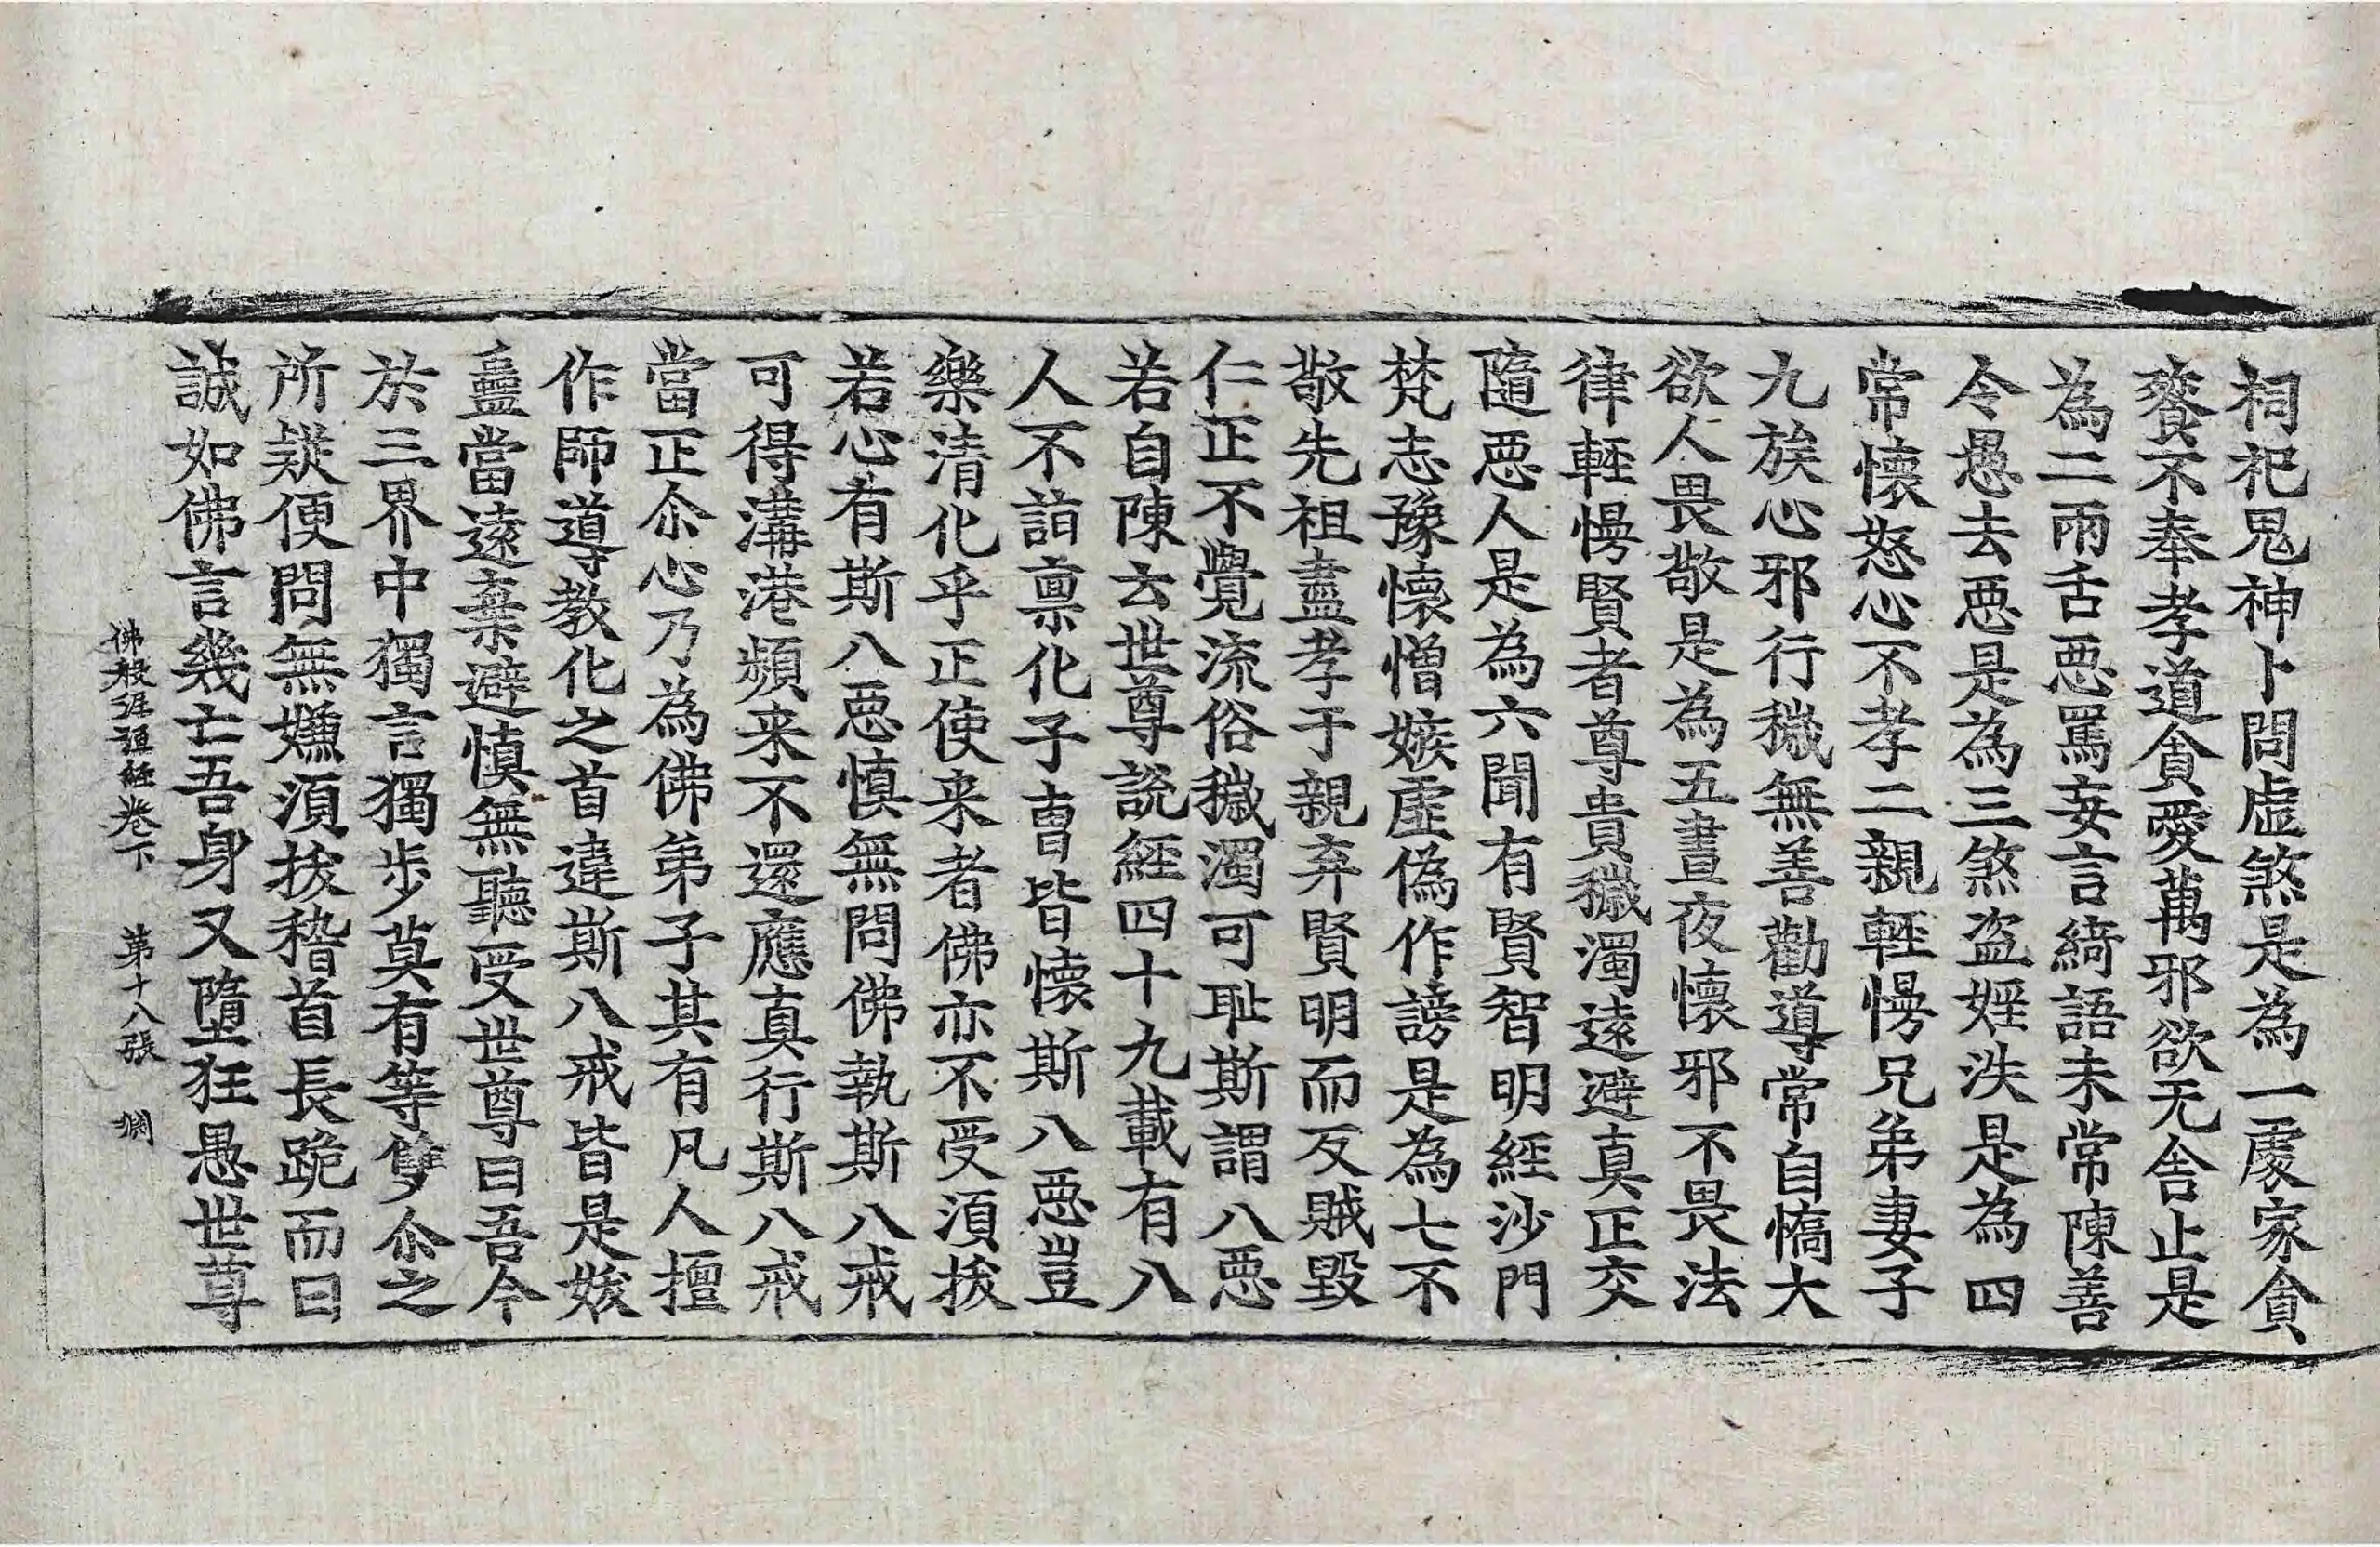 祠祀鬼神卜問虛煞是為一處家貪
餮不奉孝道貪愛萬邪欲无舍止是
為二兩舌惡罵妄言綺語未常陳善
令愚去惡是為三煞盜婬泆是為四
常懷怒心不孝二親輕慢兄弟妻子
九族心邪行穢無善勸導常自憍大
欲人畏敬是為五晝夜懷邪不畏法
律輕慢賢者尊貴穢濁遠避真正交
隨惡人是為六聞有賢智明經沙門
梵志豫懷憎嫉虛偽作謗是為七不
敬先祖盡孝于親弃賢明而反賊毀
仁正不覺流俗穢濁可耻斯謂八惡
若自陳云世尊說經四十九載有八
人不詣稟化子曹皆懷斯八惡豈
樂清化乎正使来者佛亦不受須拔
若心有斯八惡慎無問佛執斯八戒
可得溝港頻来不還應真行斯八戒
當正尒心乃為佛弟子其有凡人擅
作師導教化之首違斯八戒皆是妭
蠱當遠棄避慎無聽受世尊曰吾今
於三界中獨言獨步莫有等雙尒之
所疑便問無嫌須拔稽首長跪而曰
誠如佛言幾亡吾身又墮狂愚世尊
佛般泥洹經卷下 第十八張 淵